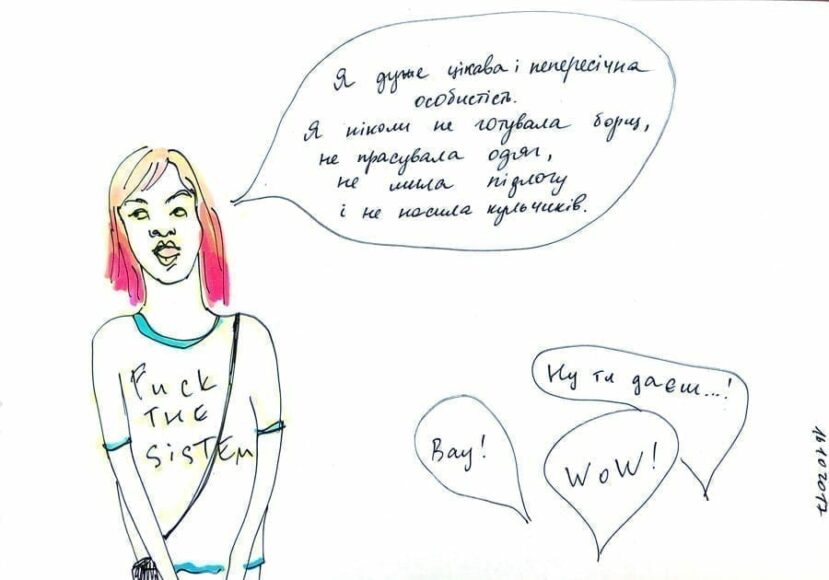 Я дуже цікава і непересічна
особистість.
Я ніколи не готувала борщ,
не прасувала одяг,
не мила підлогу
і не носила кульчиків.
Fuck
THE
SiSTEm
Ну ти даєш...!
Вау!
WoW!
16 10 2017